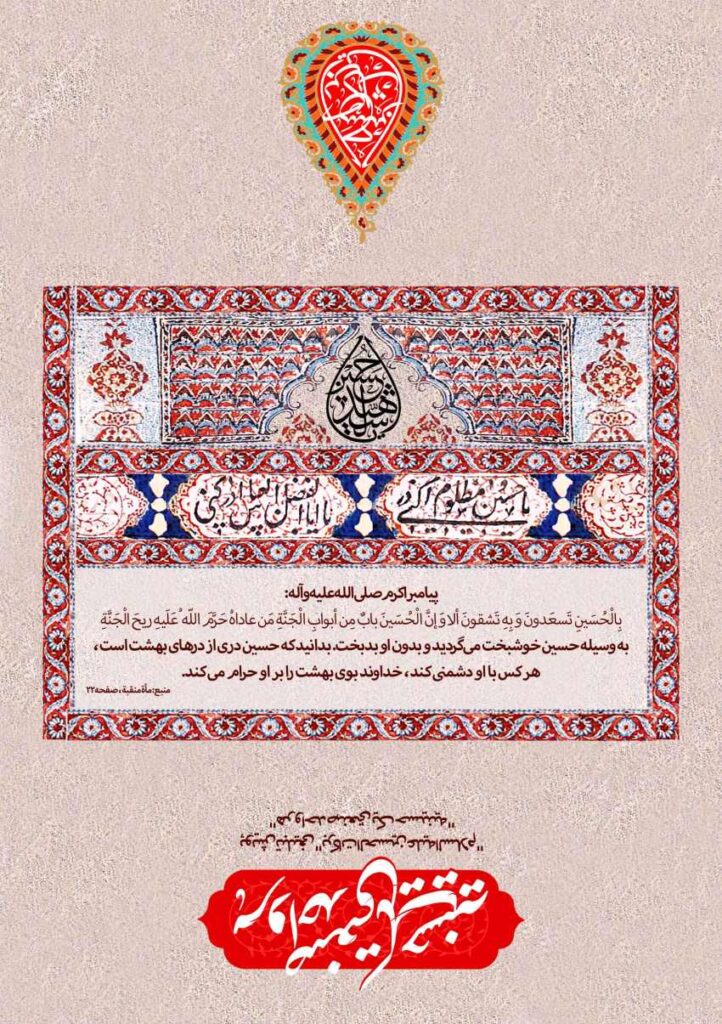 حسین
سید الشهدا
یا حسین مظلوم
یا اباالفضل العباس ادرکنی
پیامبر اکرم صلی الله علیه و آله:
بِالْحُسَینِ تَسعَدونَ وَ بِهِ تَشقونَ ألا وَ إنَّ الْحُسَینَ بابٌ مِن أبوابِ الْجَنَّةِ مَن عاداهُ حَرَّمَ اللهُ عَلَیهِ ریحَ الْجَنَّةِ
به وسیله حسین خوشبخت می‌گردید و بدون او بدبخت. بدانید که حسین دری از درهای بهشت است،
هر کس با او دشمنی کند، خداوند بوی بهشت را بر او حرام می‌کند.
منبع: مأة منقبة، صفحه ۲۲
"هر واحد صنعتی یک حسینیه"
پویش تبلیغی "برکات الحسین علیه السلام"